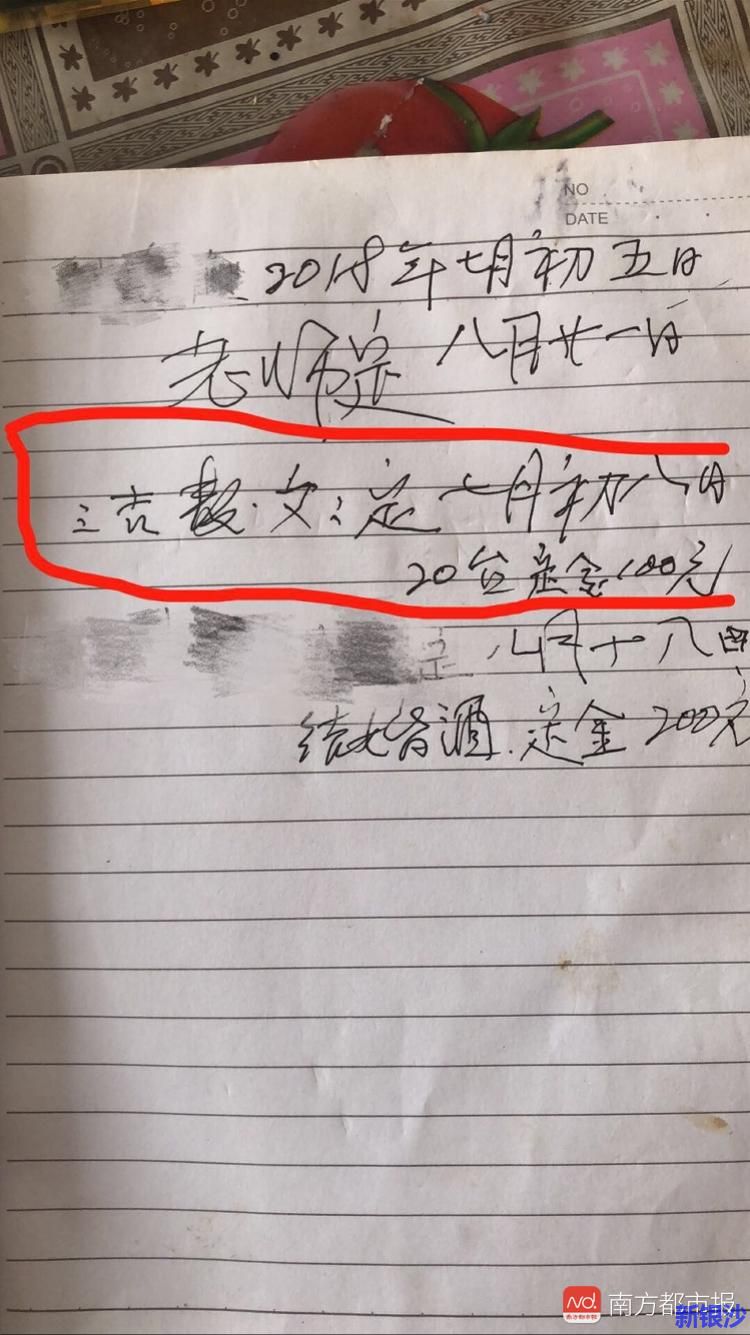 NO
DATE
2018年七月初五日
老师定 八月廿一日
吉 文:定 七月初八日
20台定金100元
定 八月十八日
结婚酒.定金200元
Nd. 南方都市报
南方都市报
新银沙